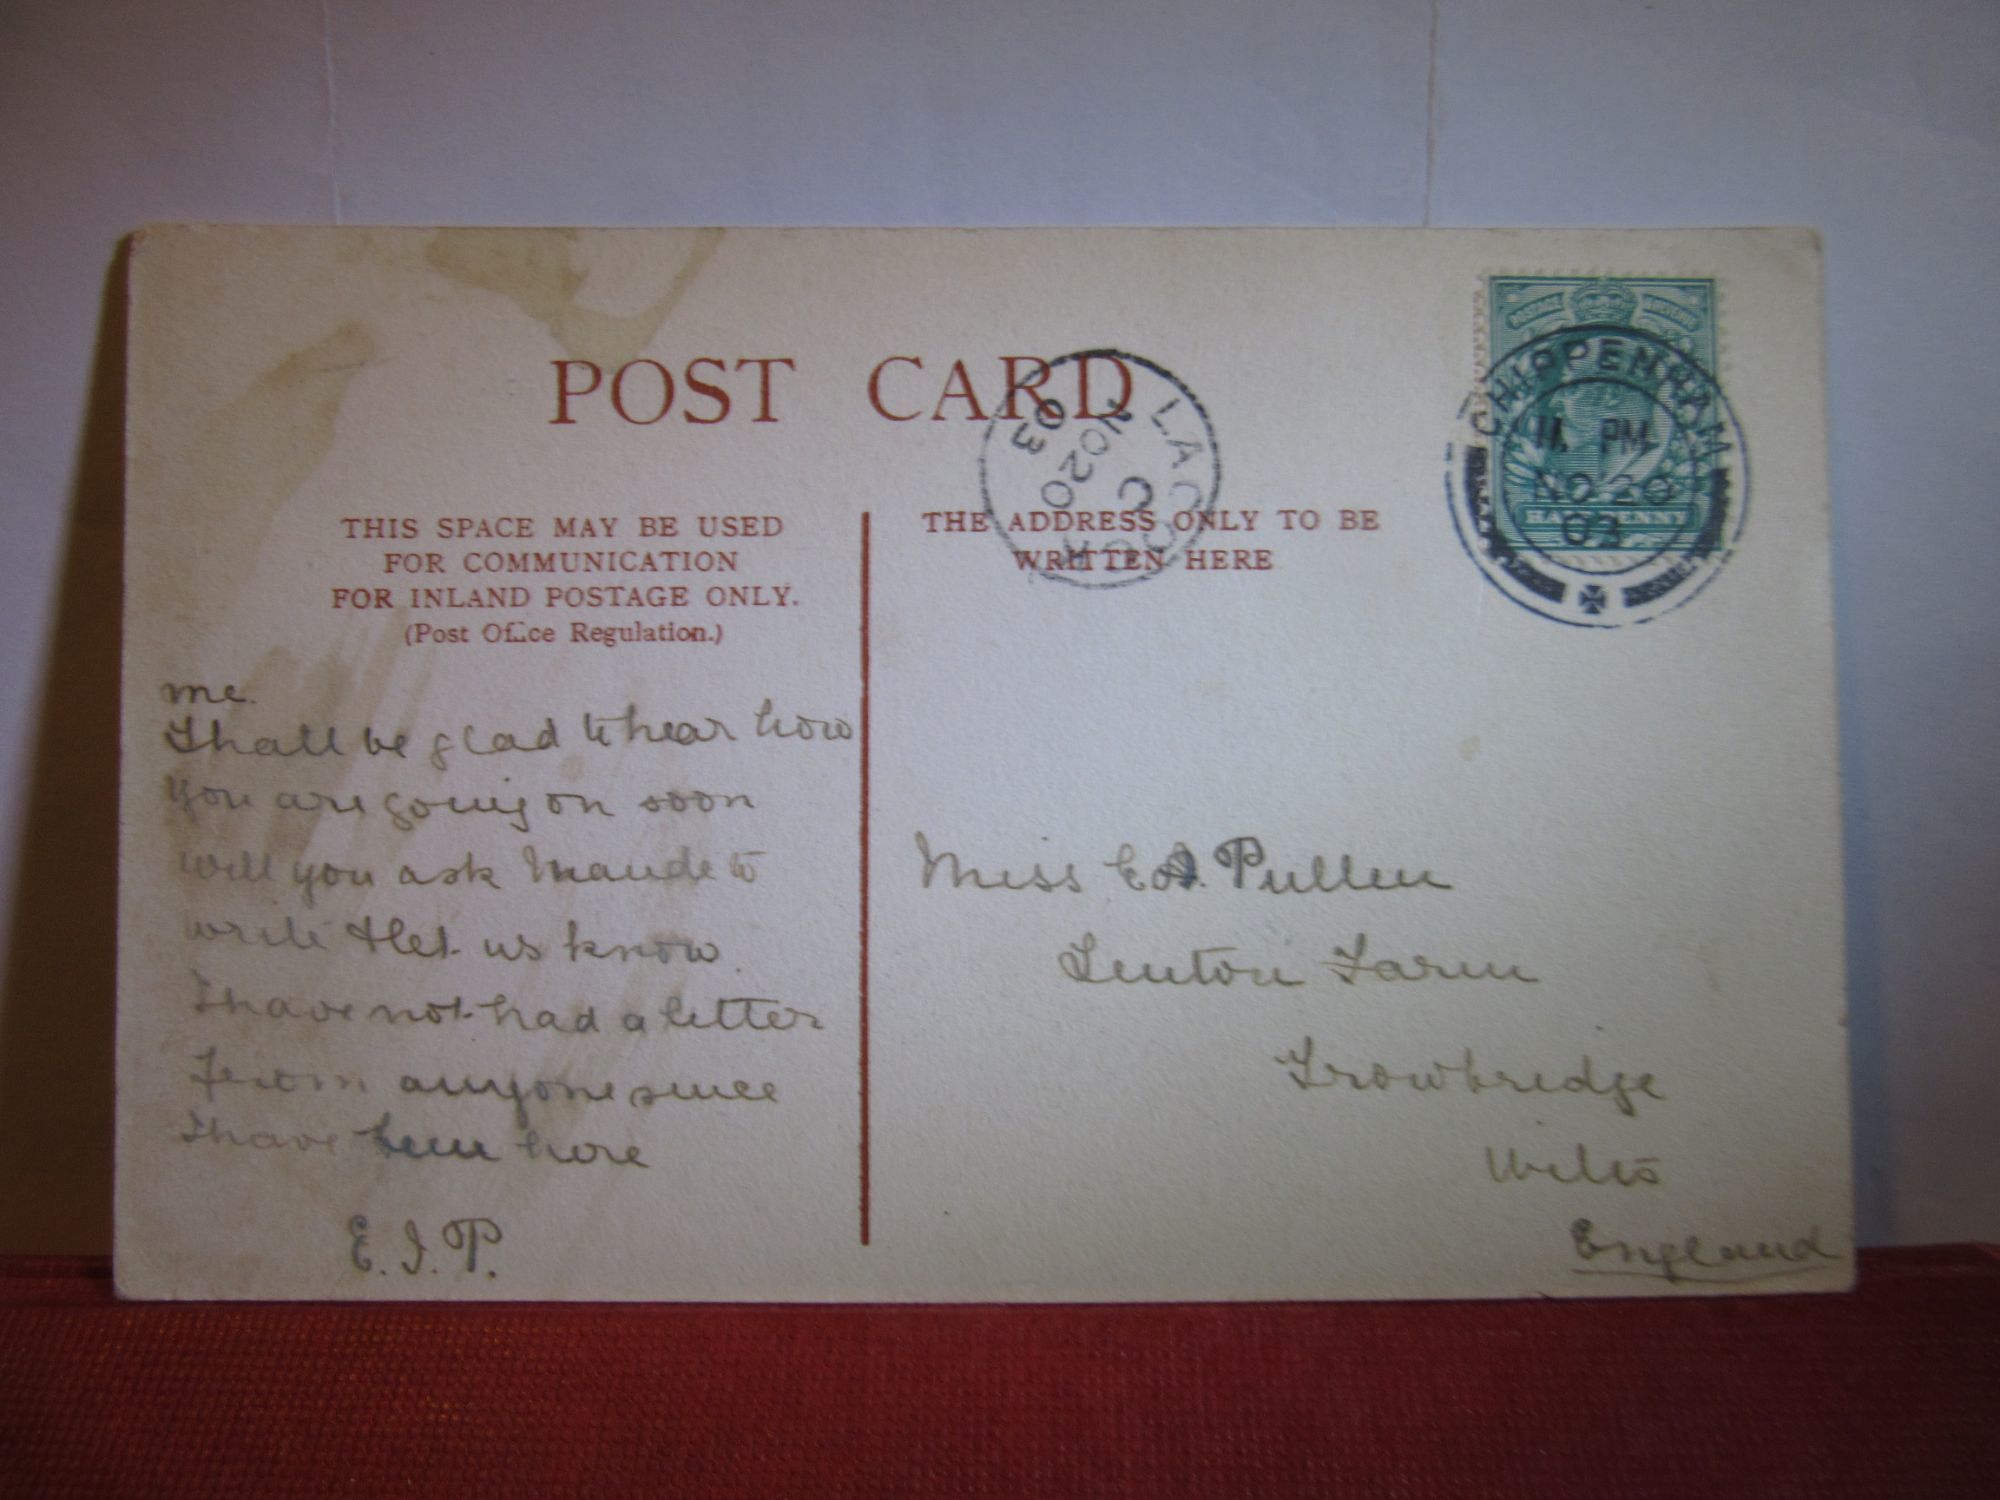 POST CARD
THIS SPACE MAY BE USED
FOR COMMUNICATION
FOR INLAND POSTAGE ONLY.
(Post Office Regulation.)
THE ADDRESS ONLY TO BE
WRITTEN HERE
LACOCK
C
NO 20
03
POSTAGE REVENUE
HALFPENNY
CHIPPENHAM
11 PM
NO 20
03
me.
I hall be glad to hear how
you are going on soon
will you ask Maude to
write & let us know.
I have not had a letter
from anyone since
I have been here
E. I. P.
Miss E A. Pullen
Lenton Farm
Trowbridge
Wilts
England